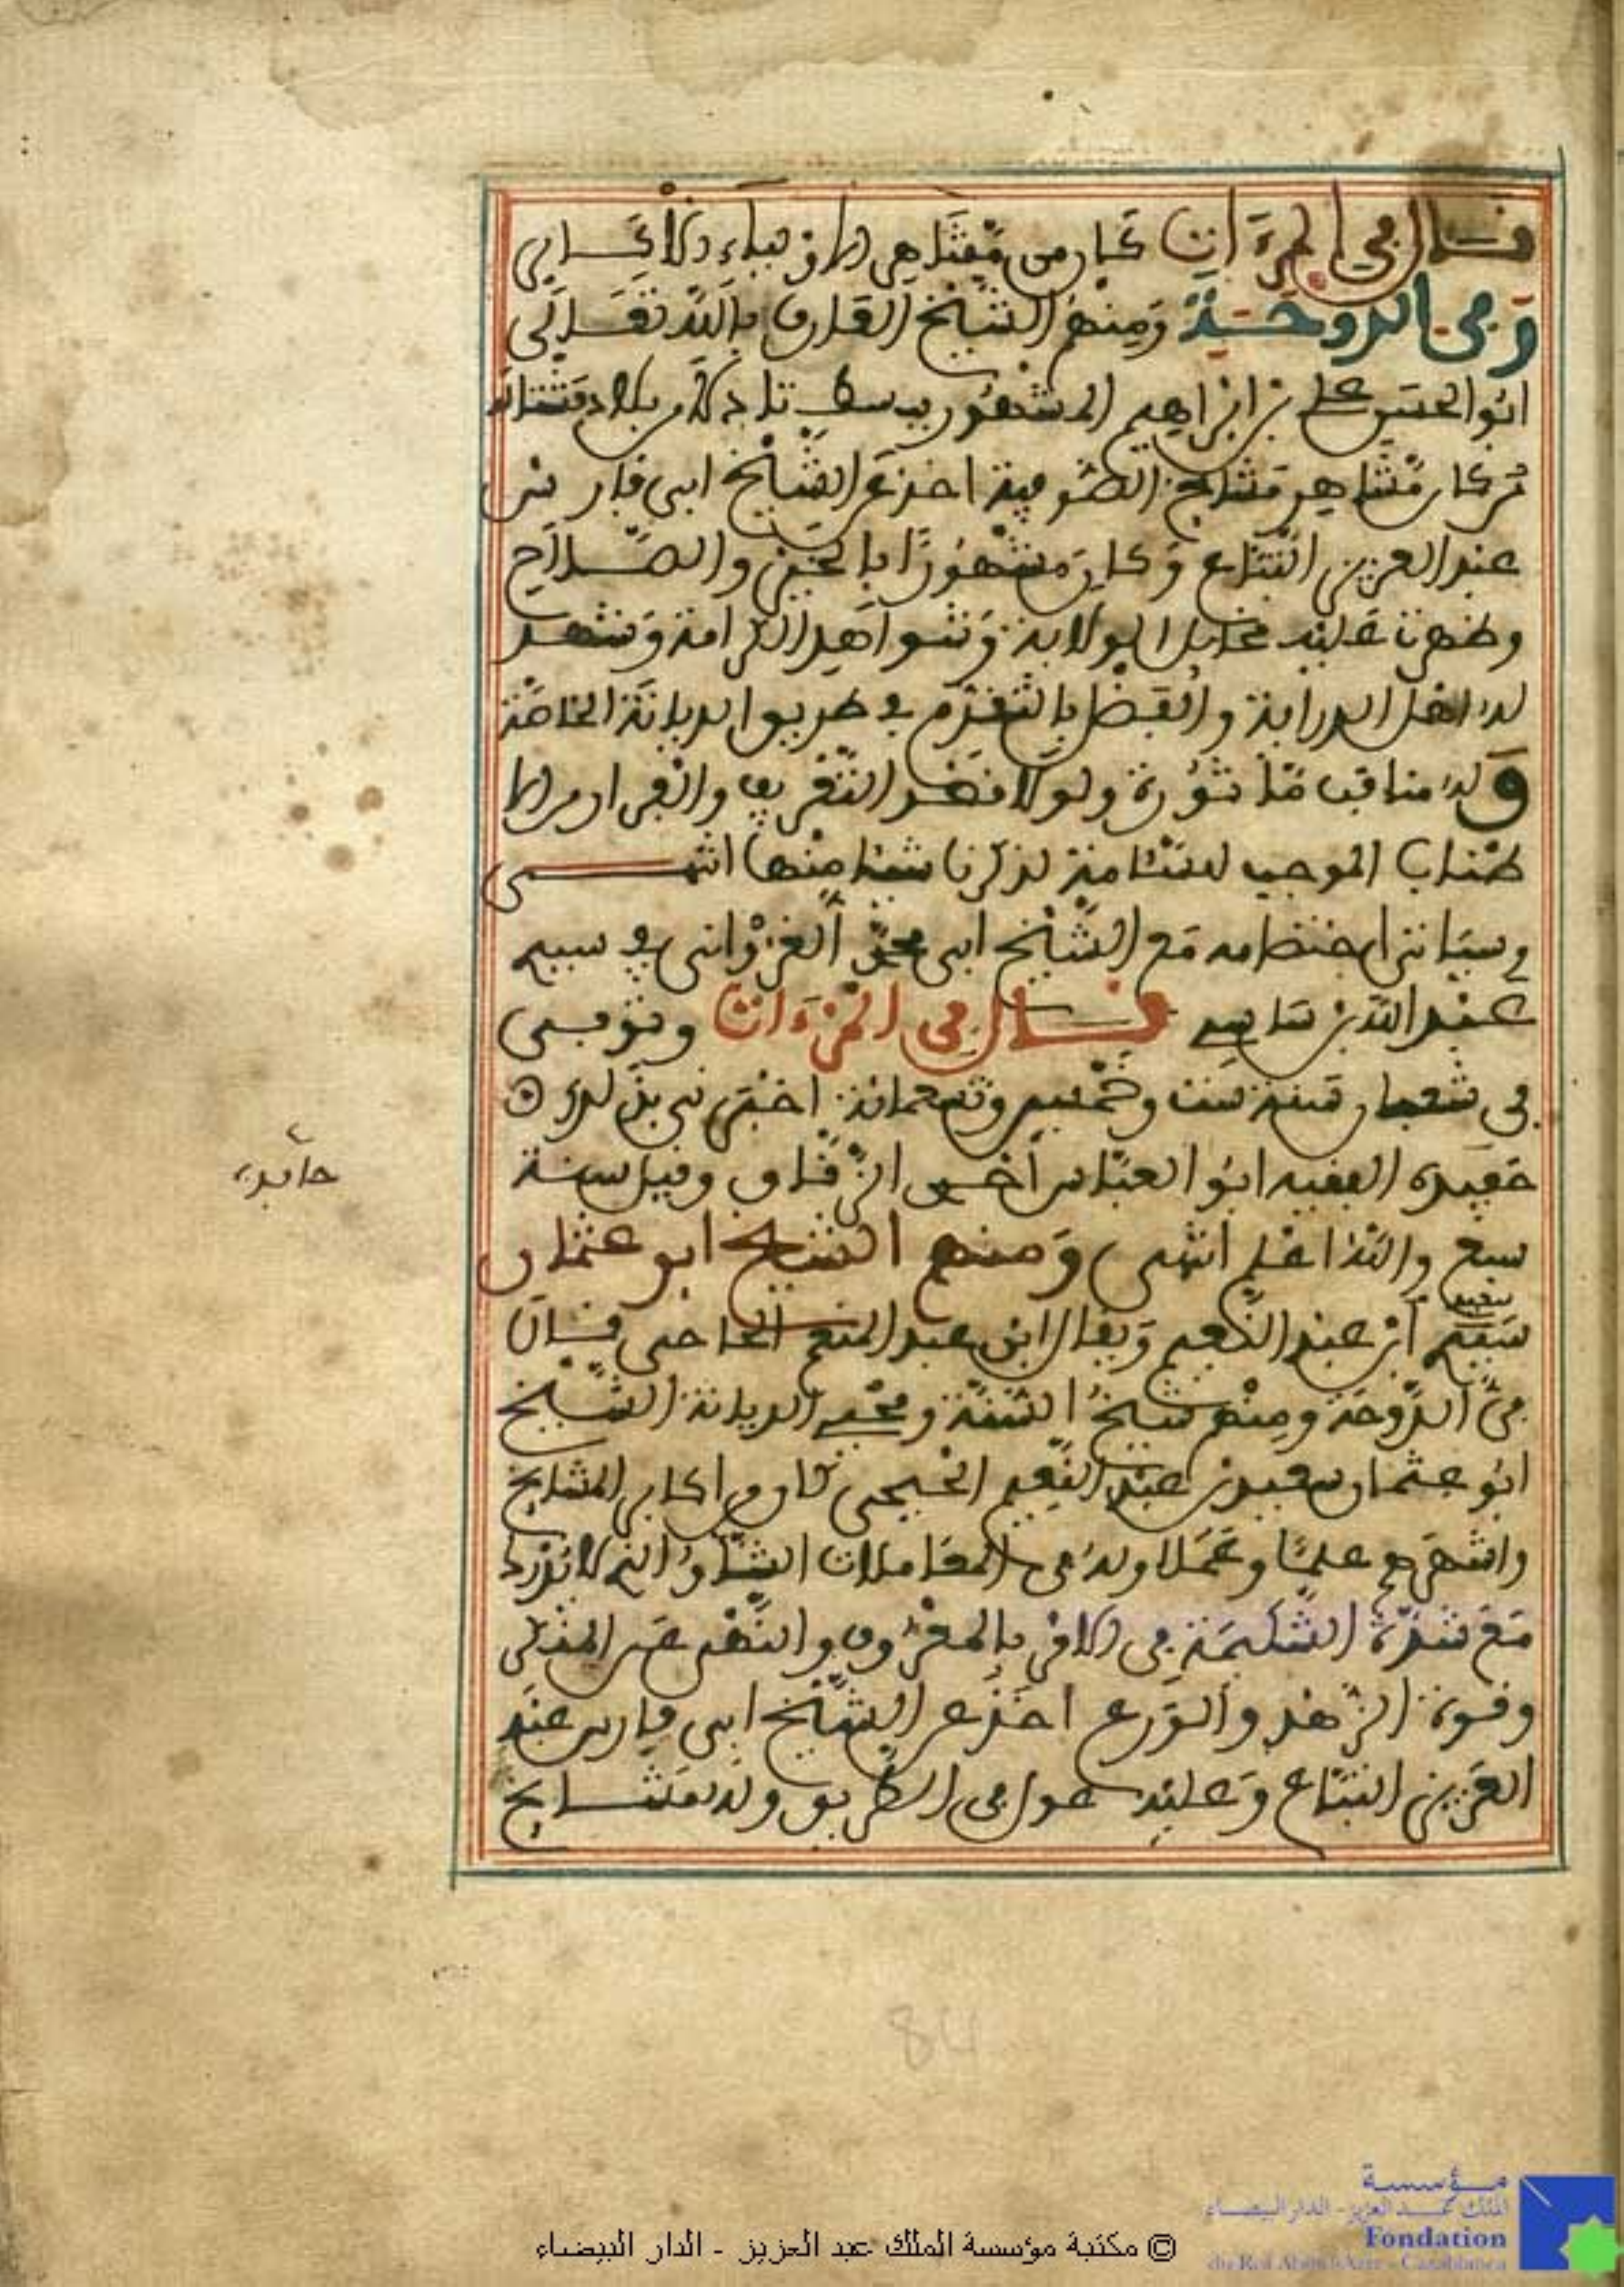 قال في المرءات كان من مشاهر الاولياء والاكابر
وفي الدوحة ومنهم الشيخ العارف بالله تعالى
ابو الحسن علي بن ابراهيم المشهور ببسط تادلا من بلاد
من كبار مشاهر مشايخ الصوفية اخذ عن الشيخ ابي فارس
عبد العزيز التباع وكان مشهورا بالخير والصلاح
وظهرت عليه مخايل الولاية وشواهد الكرامة وشهد
له اهل الدراية والفضل بالتقدم في طريق الديانة الخاصة
وله مناقب مأثورة ولولا قصد التقريب والفرار من الا
طناب الموجب للسئامة لذكرنا شيئا منها انتهى
وسياتي اختصامه مع الشيخ ابي محمد الغزواني في سيدي
عبد الله بن ساسي قال في المرءات وتوفي
في شعبان سنة ست وخمسين وتسعمائة اخبرني بذلك
حفيده الفقيه ابو العباس احمد الزقاق وقيل سنة
سبع والله اعلم انتهى ومنهم الشيخ ابو عثمان
سعيد
سعيد ابن عبد النعيم ويقال ابن عبد المنعم الحاحي قال
في الدوحة ومنهم شيخ السنة ومحيي الديانة الشيخ
ابو عثمان سعيد بن عبد النعيم كان من اكابر المشايخ
واشتهر علما وعملا وله في المعاملات الشأو الذي لا يدرك
مع شدة الشكيمة في الامر بالمعروف والنهي عن المنكر
وقوة الزهد والورع اخذ عن الشيخ ابي فارس عبد
العزيز التباع وعليه عول في الطريق وله مشايخ
84
© مكتبة مؤسسة الملك عبد العزيز - الدار البيضاء
مؤسسة
الملك عبد العزيز - الدار البيضاء
Fondation
du Roi Abdul-Aziz - Casablanca